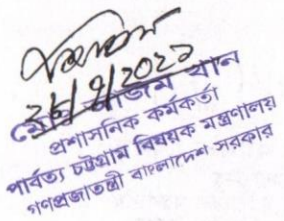 ২৮/৭/২০২১
মোঃ আজম খান
প্রশাসনিক কর্মকর্তা
পার্বত্য চট্টগ্রাম বিষয়ক মন্ত্রণালয়
গণপ্রজাতন্ত্রী বাংলাদেশ সরকার